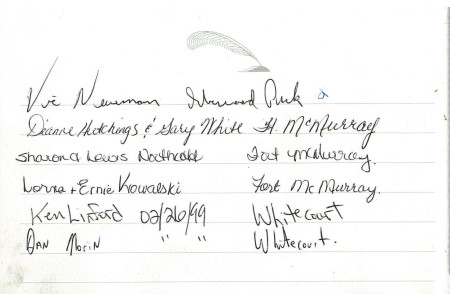 Vic Newman Sherwood Park
Dianne Hutchings & Gary White Ft. McMurray
Sharon & Lewis Northcott Fort McMurray.
Lorna + Ernie Kowalski Fort McMurray.
Ken Linford 02/26/99 Whitecourt
Dan Morin " " Whitecourt.